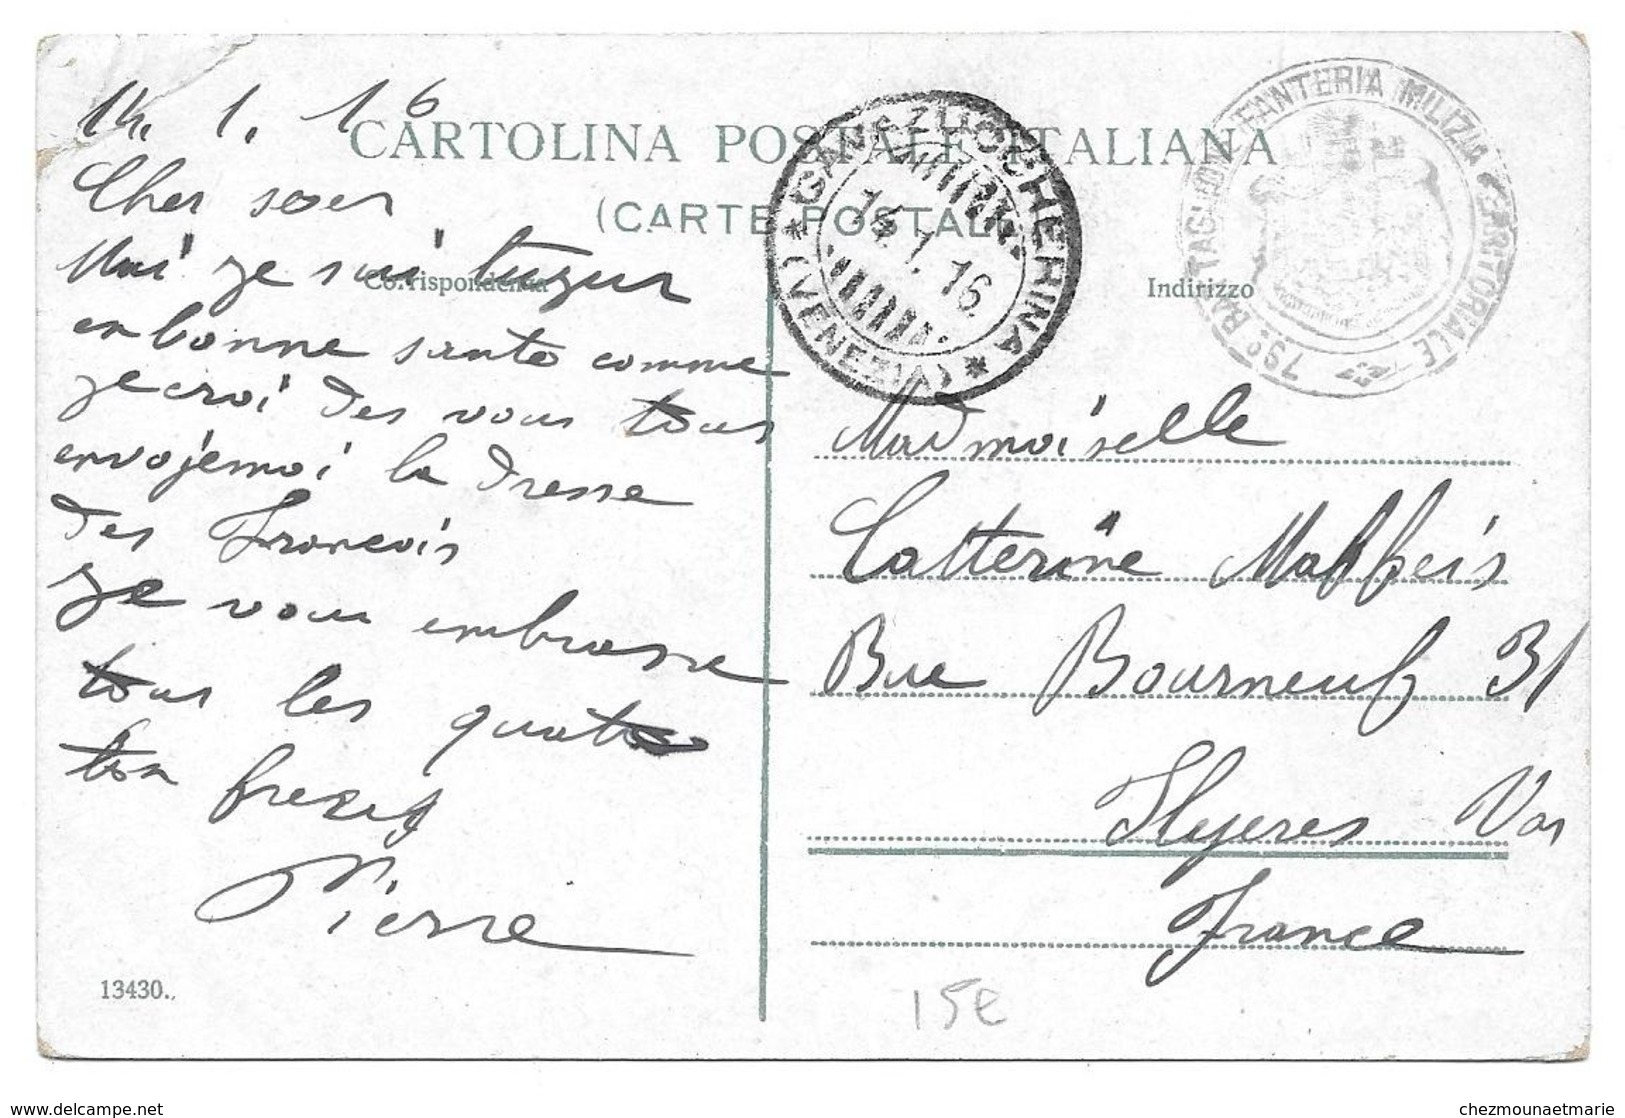 14. 1. 16
CARTOLINA POSTALE ITALIANA
(CARTE POSTALE)
Correspondenza
Indirizzo
CAVAZUCCHERINA
(VENEZIA)
14.1.16
79° BATTAGLIONE FANTERIA MILIZIA TERRITORIALE
Cher soer
Moi je sui tugur
en bonne sante comme
je croi des vous tous
envojemoi la dresse
des Francois
Je vous embrasse
tous les quatro
ton frere
Pierre
Madmoiselle
Catterine Maffeis
Rue Bourneuf 31
Hyeres Var
France
13430.
15€
www.delcampe.net
chezmounaetmarie